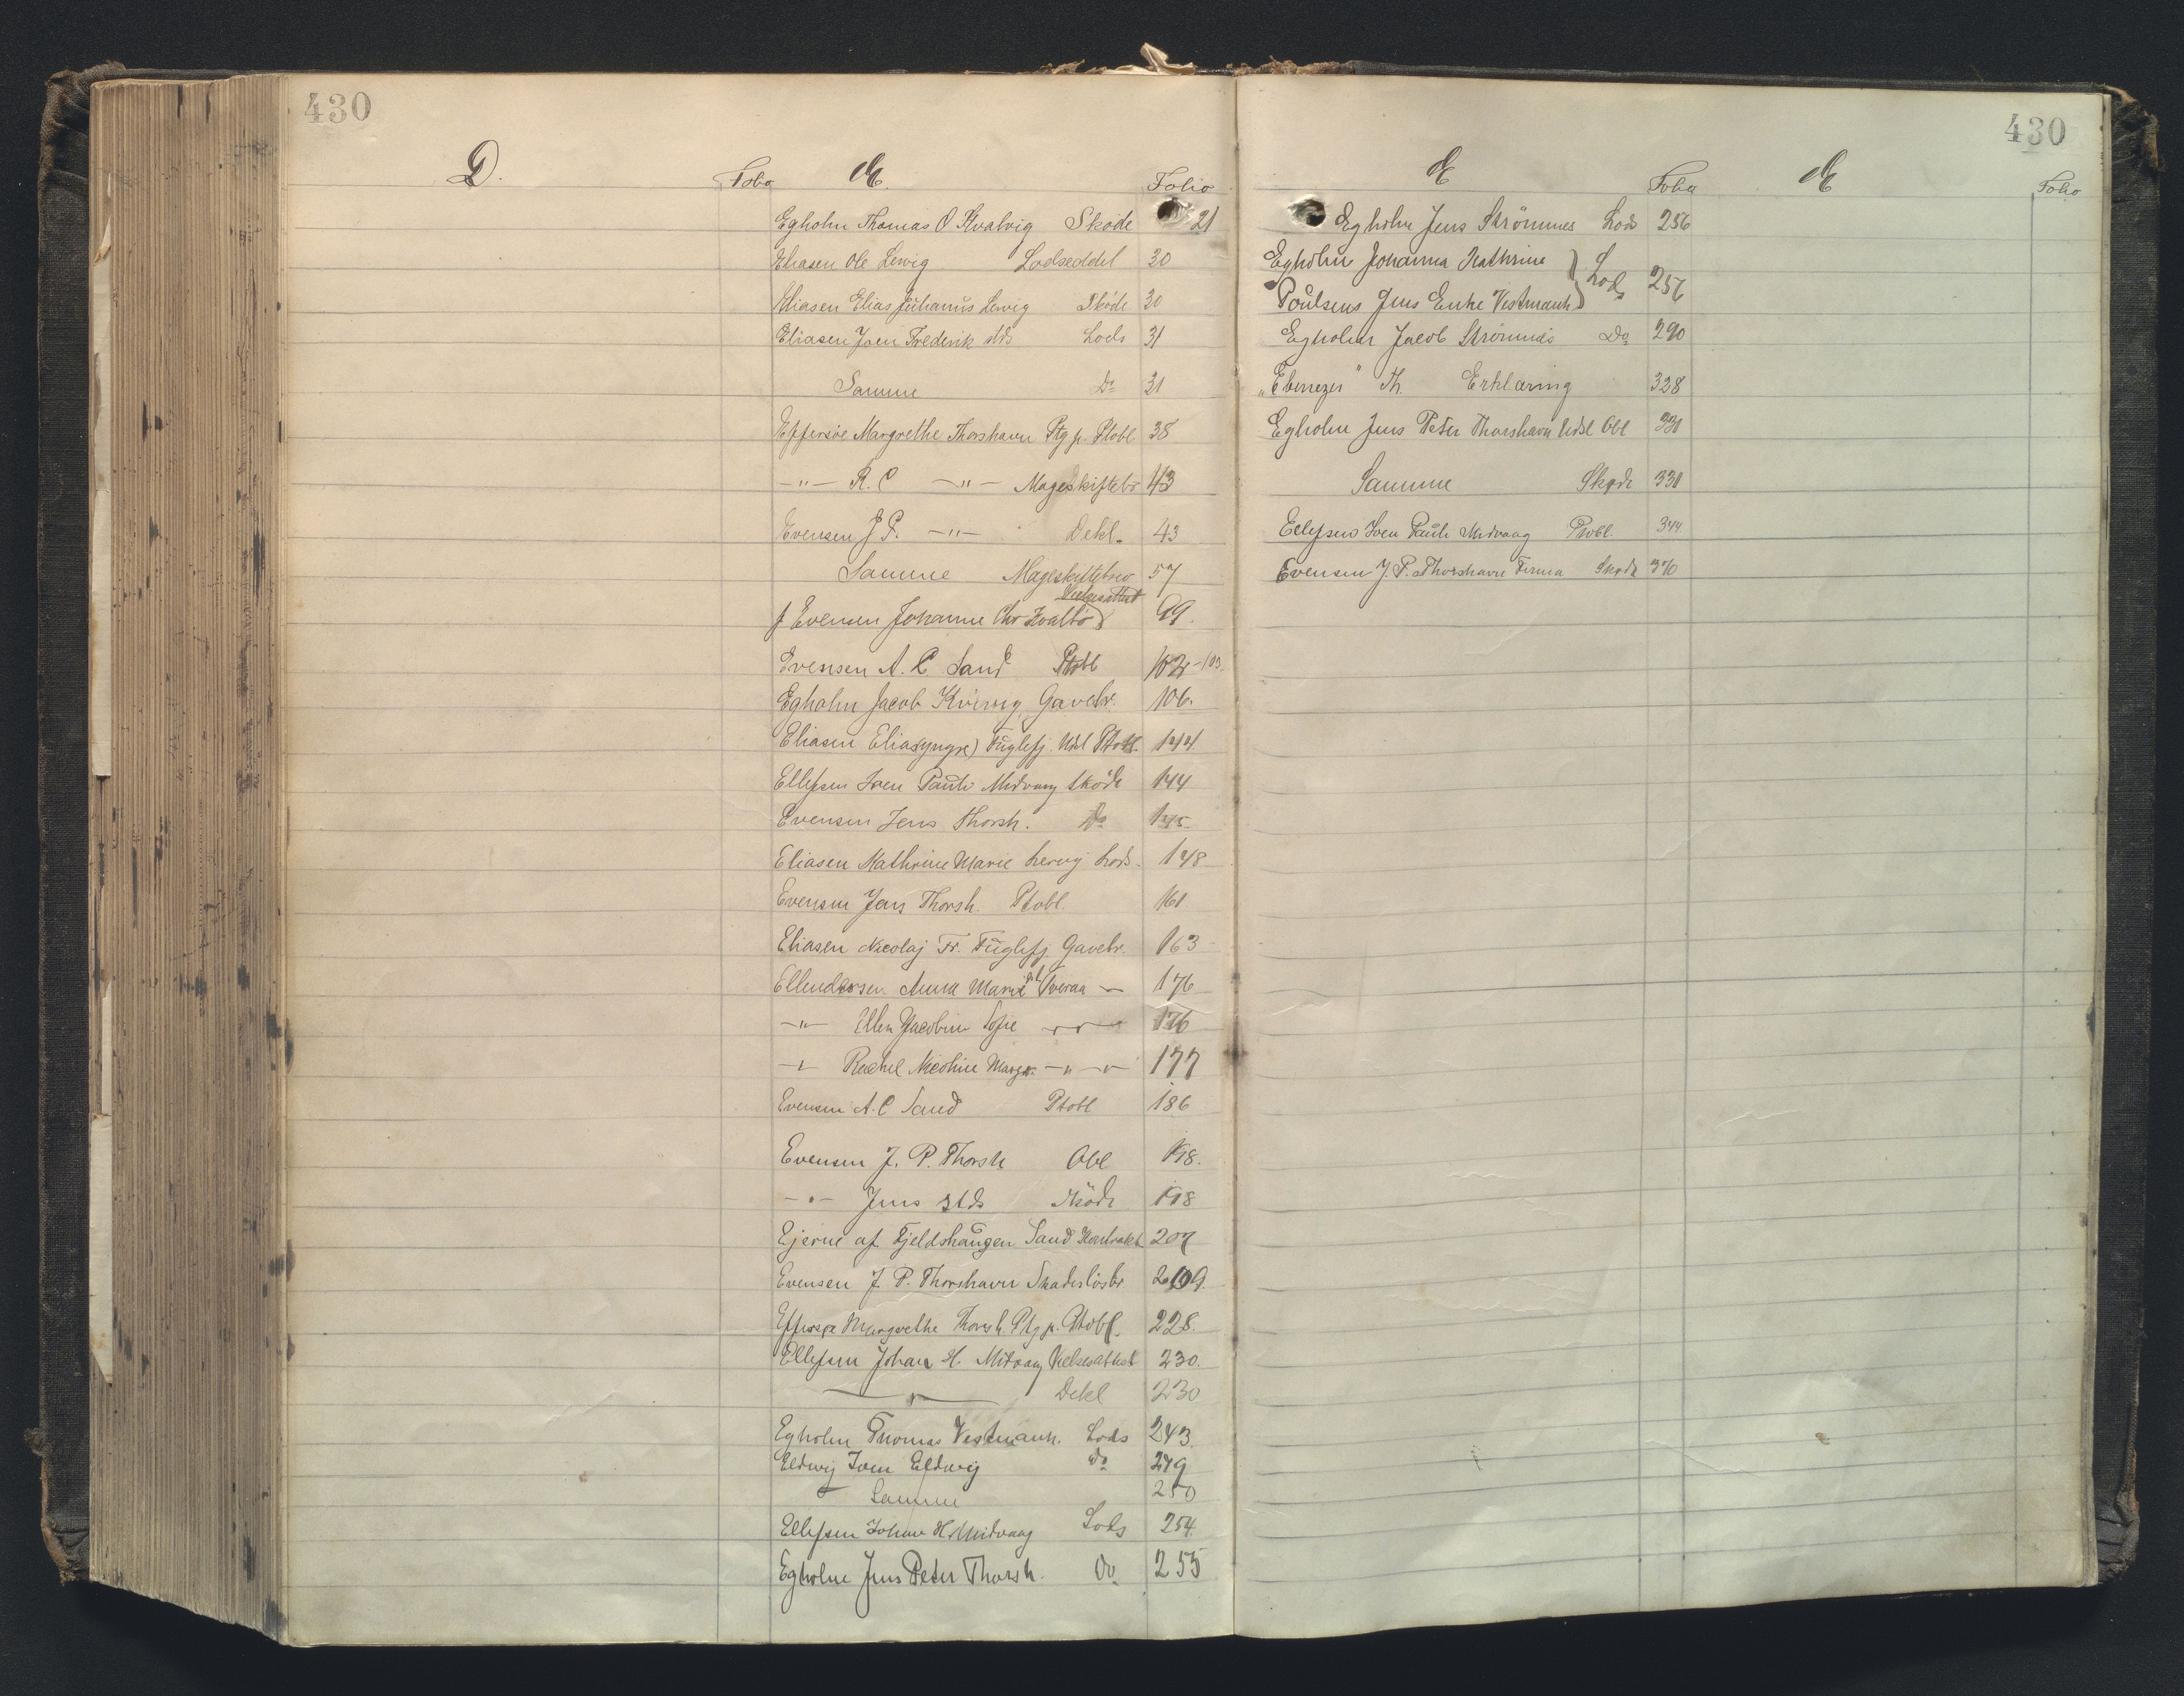 430
D.
Folio
E.
Folio
Egholm Thomas O Kvalvig Skøde 21
Eliasen Ole Lervig Lodseddel 30
Eliasen Elias Juhanus Lervig Skøde 30
Eliasen Joen Frederik stds Lods 31
Samme Do 31
Effersøe Margrethe Thorshavn Ptg p. Ptobl 38
-"- R. C -"- Mageskiftebr 43
Evensen J P. -"- Dekl. 43
Samme Mageskiftebrev 57
Vielsesattest
f Evensen Johanne Chr Kvalbø 99.
Evensen A. C Sand Ptobl 102-103.
Egholm Jacob Gavebr. 106.
Eliasen Elias (yngre) Fuglefj. Udsl Ptobl. 144
Ellefsen Joen Pauli Midvaag Skøde 144
Evensen Jens Thorsh. Do 145
Eliasen Kathrine Marie Lervig Lods. 148
Evensen Jens Thorsh. Ptobl. 161
Eliasen Nicolaj Fr. Fuglefj Gavebr. 163
Ellendersen Anna Marie Tveraa — 176
-"- Ellen Jacobine Sofie -"- 176
-"- Rachel Nicoline Margr. -"- -"- 177
Evensen A. C Sand Ptobl 186
Evensen J. P. Thorsh Obl 198.
-"- Jens stds Skøde 198
Ejerne af Fjeldshaugen Sand Kontrakt 207
Evensen J. P. Thorshavn Skadesløsbr 209.
Effersøe Margrethe Thorsh. Ptg p. Ptobl. 228.
Ellefsen Johan H. Midvaag Vielsesattest 230.
—"— Dekl 230
Egholm Thomas Vestmanh. Lods 243.
Eldwig Joen Eldwig Do 249
Samme 250
Ellefsen Johan H. Midvaag Lods 254.
Egholm Jens Peter Thorsh. Do 255
430
E
Folio
E
Folio
Egholm Jens Strömnes Lods 256
Egholm Johanna Kathrine
Poulsens Jens Enke Vestmanh Lods 257
Egholm Jacob Strömnæs Do 290
"Ebenezer" Th. Erklæring 328
Egholm Jens Peter Thorshavn Udsl Obl 331
Samme Skøde 331
Ellefsen Joen Pauli Midvaag Ptobl. 344
Evensen J. P. Thorshavn Firma Skøde 370